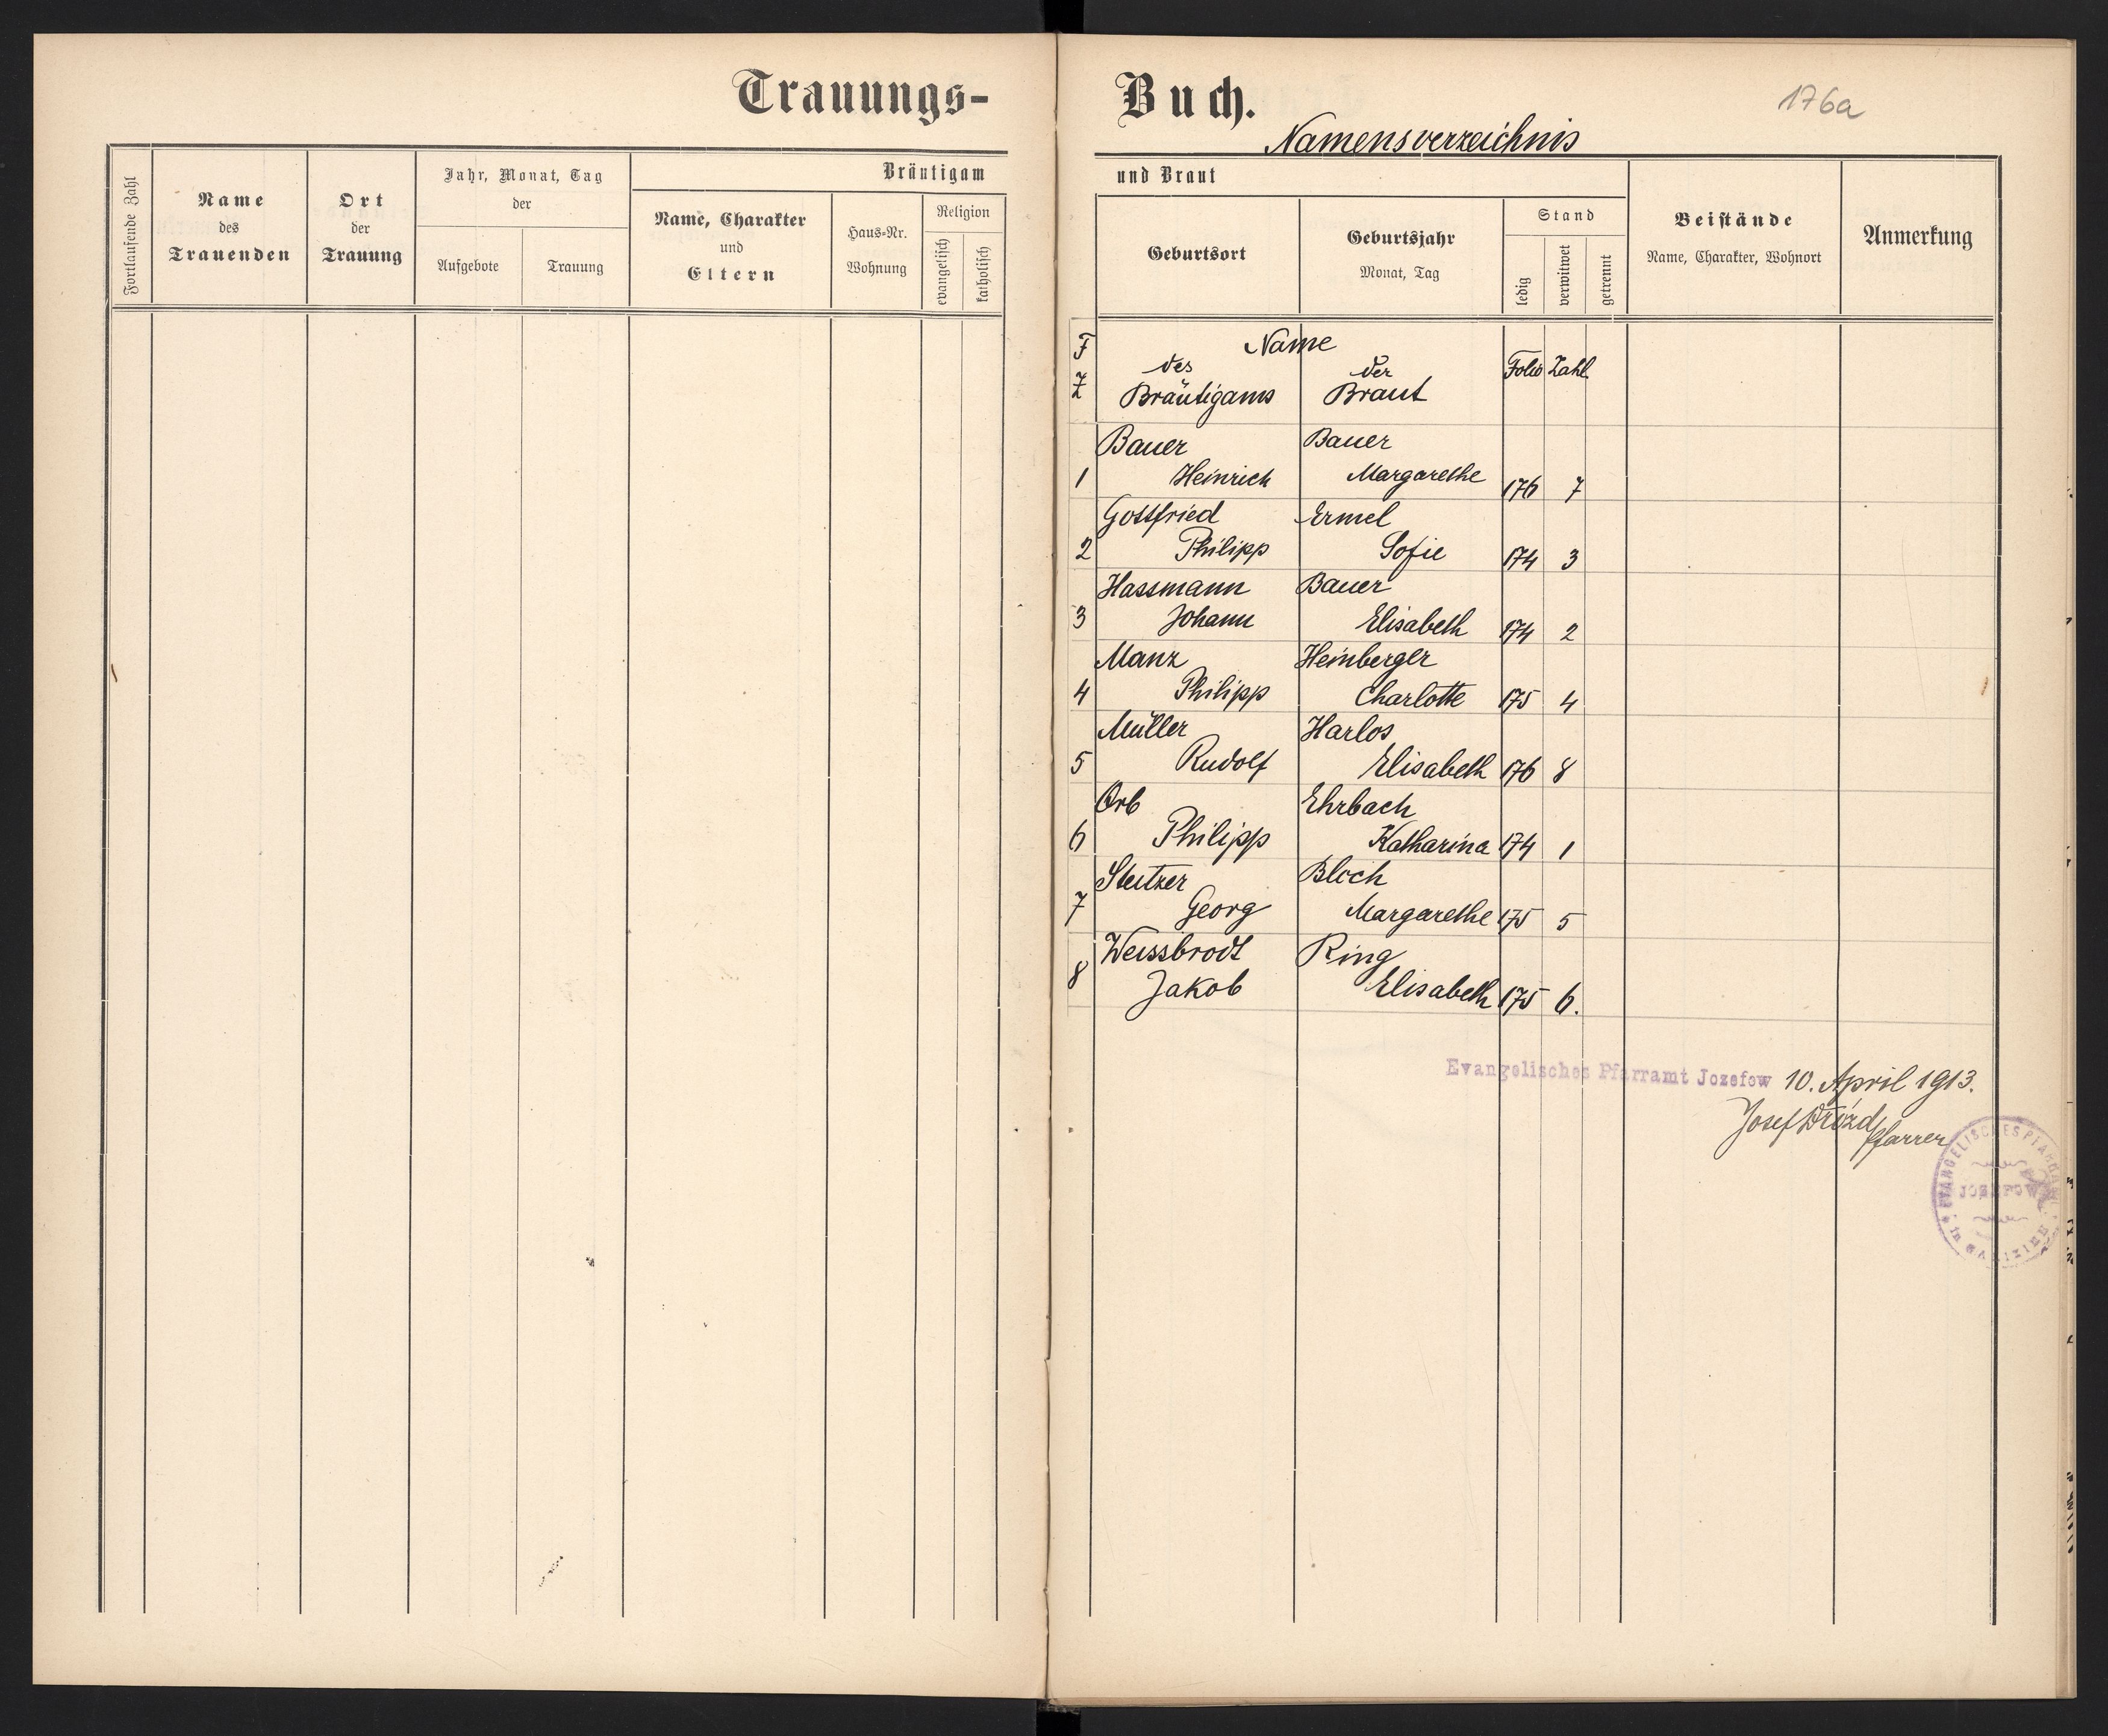 Trauungs-
Fortlaufende Zahl
Name
des
Trauenden
Ort
der
Trauung
Jahr, Monat, Tag
der
Aufgebote
Trauung
Bräutigam
Name, Charakter
und
Eltern
Haus-Nr.
Wohnung
Religion
evangelisch
katholisch
Buch.
176a
Namensverzeichnis
und Braut
Geburtsort
Geburtsjahr
Monat, Tag
Stand
ledig
verwitwet
getrennt
Beistände
Name, Charakter, Wohnort
Anmerkung
F
Z
Name
des der
Bräutigams Braut
Folio Zahl
Bauer Bauer
1 Heinrich Margarethe 176 7
Gottfried Ermel
2 Philipp Sofie 174 3
Hassmann Bauer
3 Johann Elisabeth 174 2
Manz Heinberger
4 Philipp Charlotte 175 4
Müller Harlos
5 Rudolf Elisabeth 176 8
Orb Ehrbach
6 Philipp Katharina 174 1
Steitzer Bloch
7 Georg Margarethe 175 5
Weissbrodt Ring
8 Jakob Elisabeth 175 6.
Evangelisches Pfarramt Jozefow 10. April 1913.
Josef Drózd
Pfarrer
EVANGELISCHES PFARRAMT
JOZEFOW
in GALIZIEN